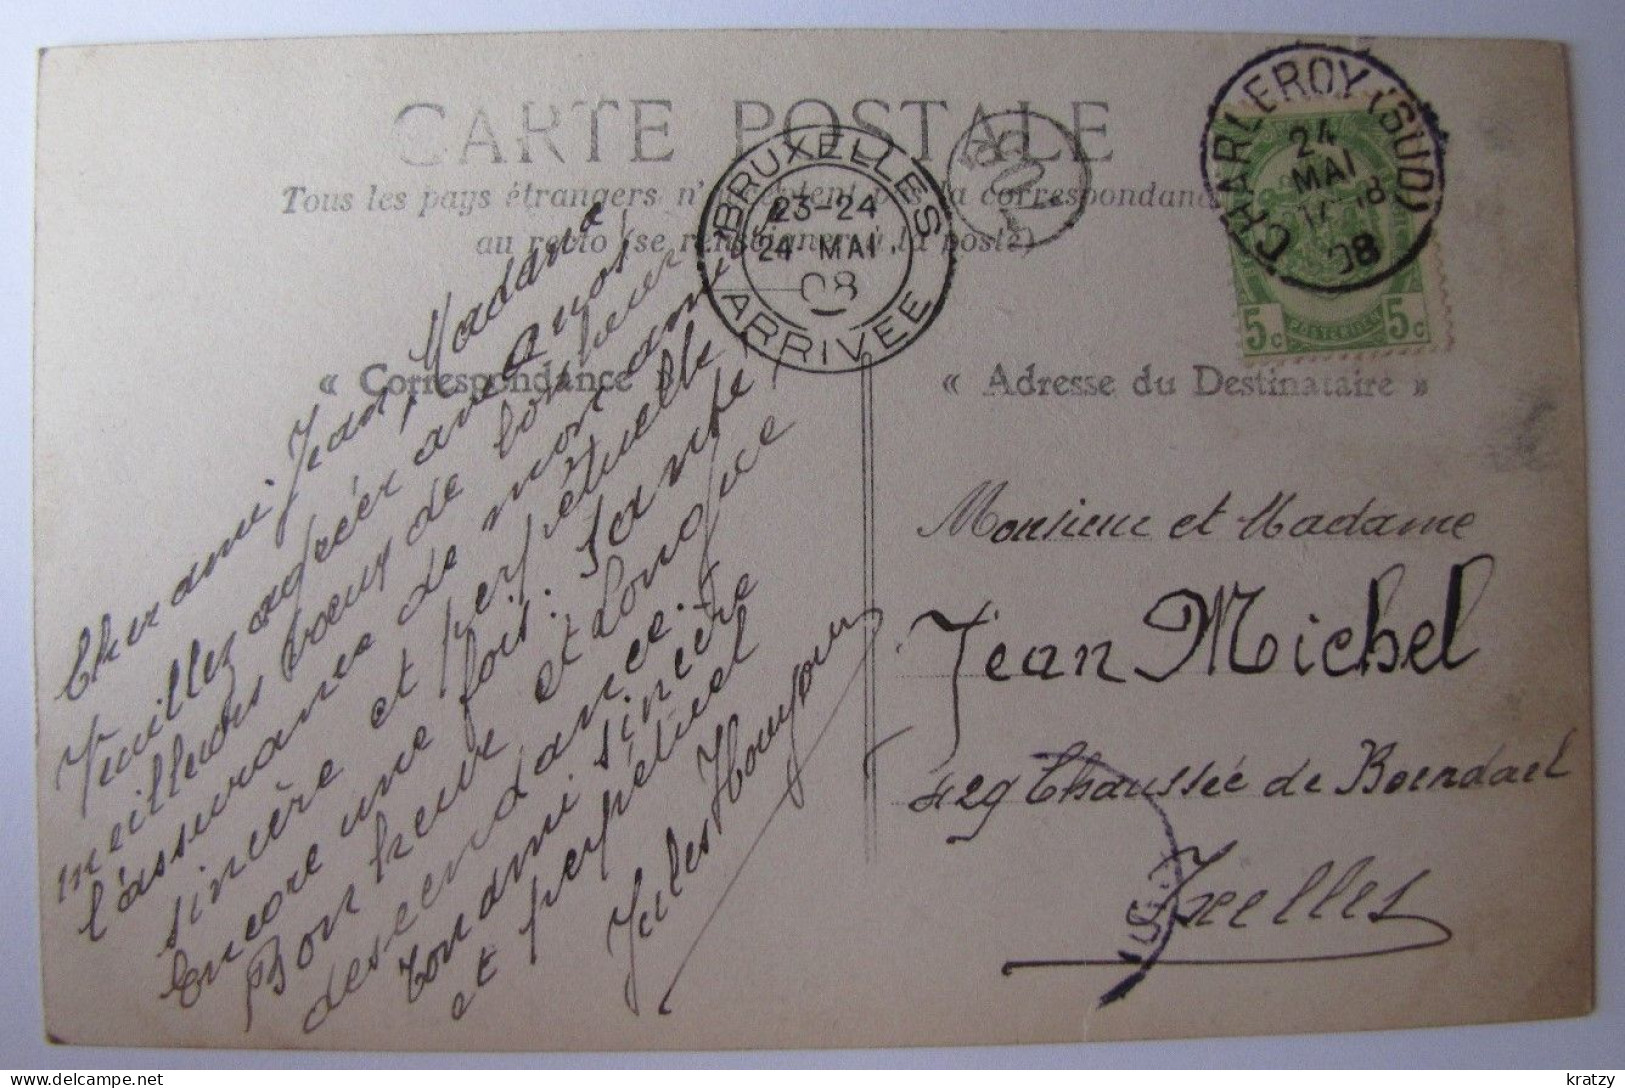 CARTE POSTALE
Tous les pays étrangers n'acceptent pas la correspondance
au recto (se renseigner à la poste)
BRUXELLES
23-24
24 MAI
08
ARRIVEE
CHARLEROY (SUD)
24
MAI
08
5c 5c
« Correspondance »
« Adresse du Destinataire »
Cher ami Jean, Madame
Veuillez agréer avec mes
meilleurs voeux de bonheur
l'assurance de mon amitié
sincère et perpétuelle
Encore une fois: Santé
Bonheur et Longue
descendance.
ton ami sincère
et perpétuel
Jules
Monsieur et Madame
Jean Michel
429 Chaussée de Boendael
Ixelles
kratzy